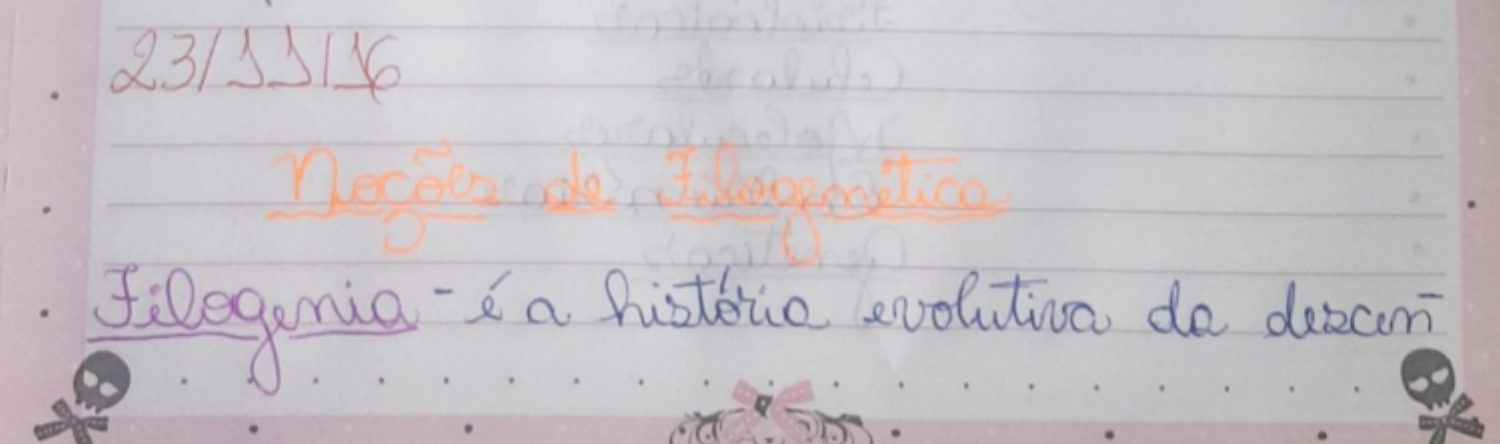 23/11/16
Noções de Filogenética
Filogenia - é a história evolutiva da descen-